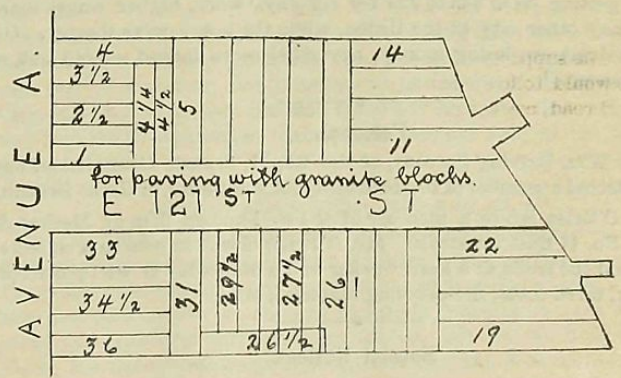 AVENUE A.
4
3 1/2
2 1/2
1
4 1/4
4 1/2
5
14
11
for paving with granite blocks.
E 121 ST ST
33
34 1/2
36
31
29 1/2
27 1/2
26
26 1/2
22
19